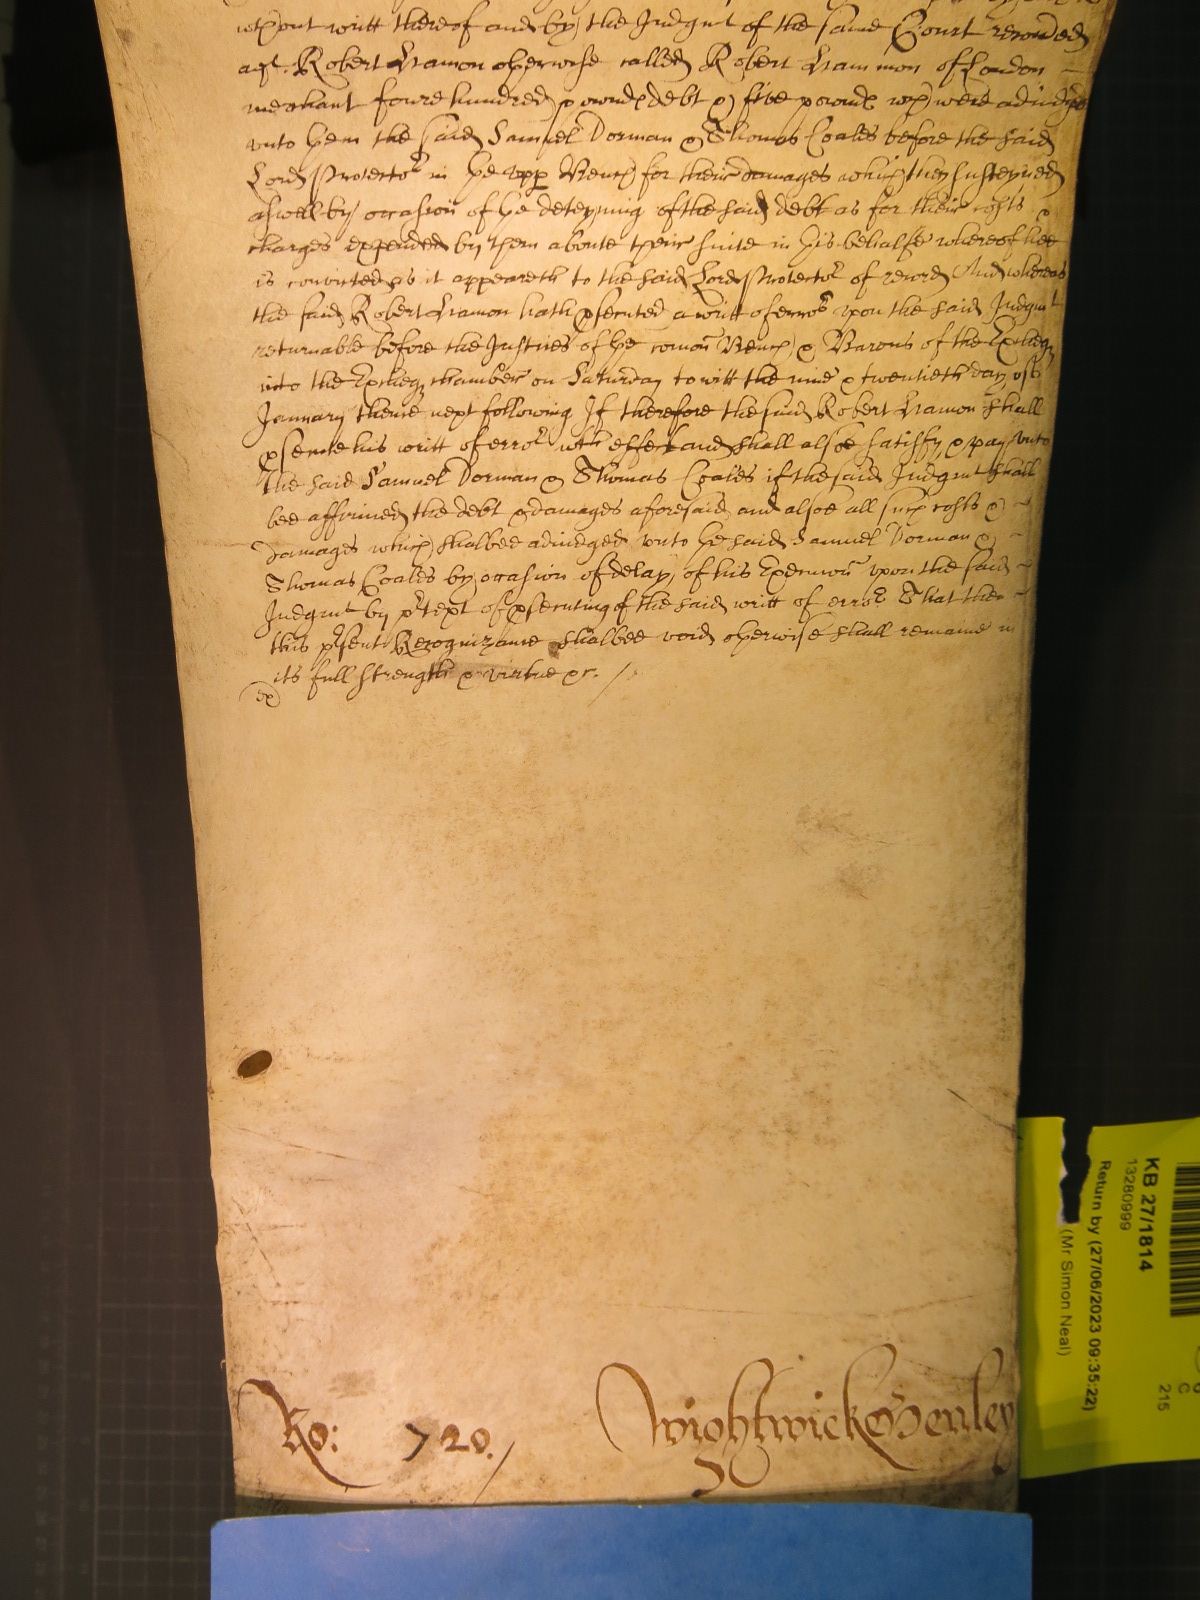 without writt thereof and by the Judgmt of the same Court recovered
agt. Robert Gramon otherwise called Robert Grammon of London
merchant foure hundred pownds debt & five pownds wch were adiudged
vnto them the said Samuel Dorman & Thomas Coales before the said
Lord Protector in the vpp Bench for their damages which they susteyned
aswell by occasion of the deteyning of the said debt as for their costs &
charges expended by them aboute their suite in this behalfe whereof hee
is convicted as it appeareth to the said Lord Protector of record And whereas
the said Robert Gramon hath psecuted a writt of error vpon the said Judgmt
returnable before the Justices of the comon Bench & Barons of the Excheqr
into the Excheqr chamber on Saturday to witt the nine & twentieth day of
January thence next following If therefore the said Robert Gramon shall
psecute his writt of error with effect and shall alsoe satisfy & pay vnto
the said Samuel Dorman & Thomas Coales if the said Judgmt shall
bee affirmed the debt & damages aforesaid and alsoe all such costs &
damages which shalbee adiudged vnto the said Samuel Dorman &
Thomas Coales by occasion of delay of his Execucion vpon the said
Judgmt by ptext of psecuting of the said writt of error That then
this psent Recognizance shalbee void otherwise shall remaine in
its full strength & virtue &c.
ex
Ro: 720. Wightwicke & Henley
KB 27/1814
13280999
Return by (27/06/2023 09:35:22)
(Mr Simon Neal)
C
215